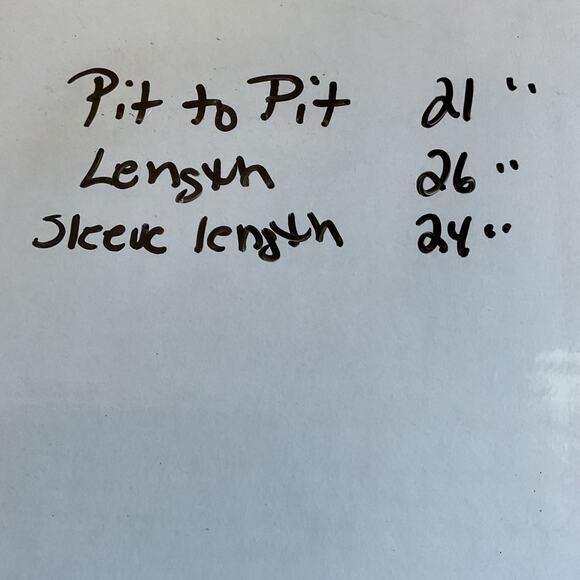 Pit to Pit 21"
Length 26"
Sleeve length 24"